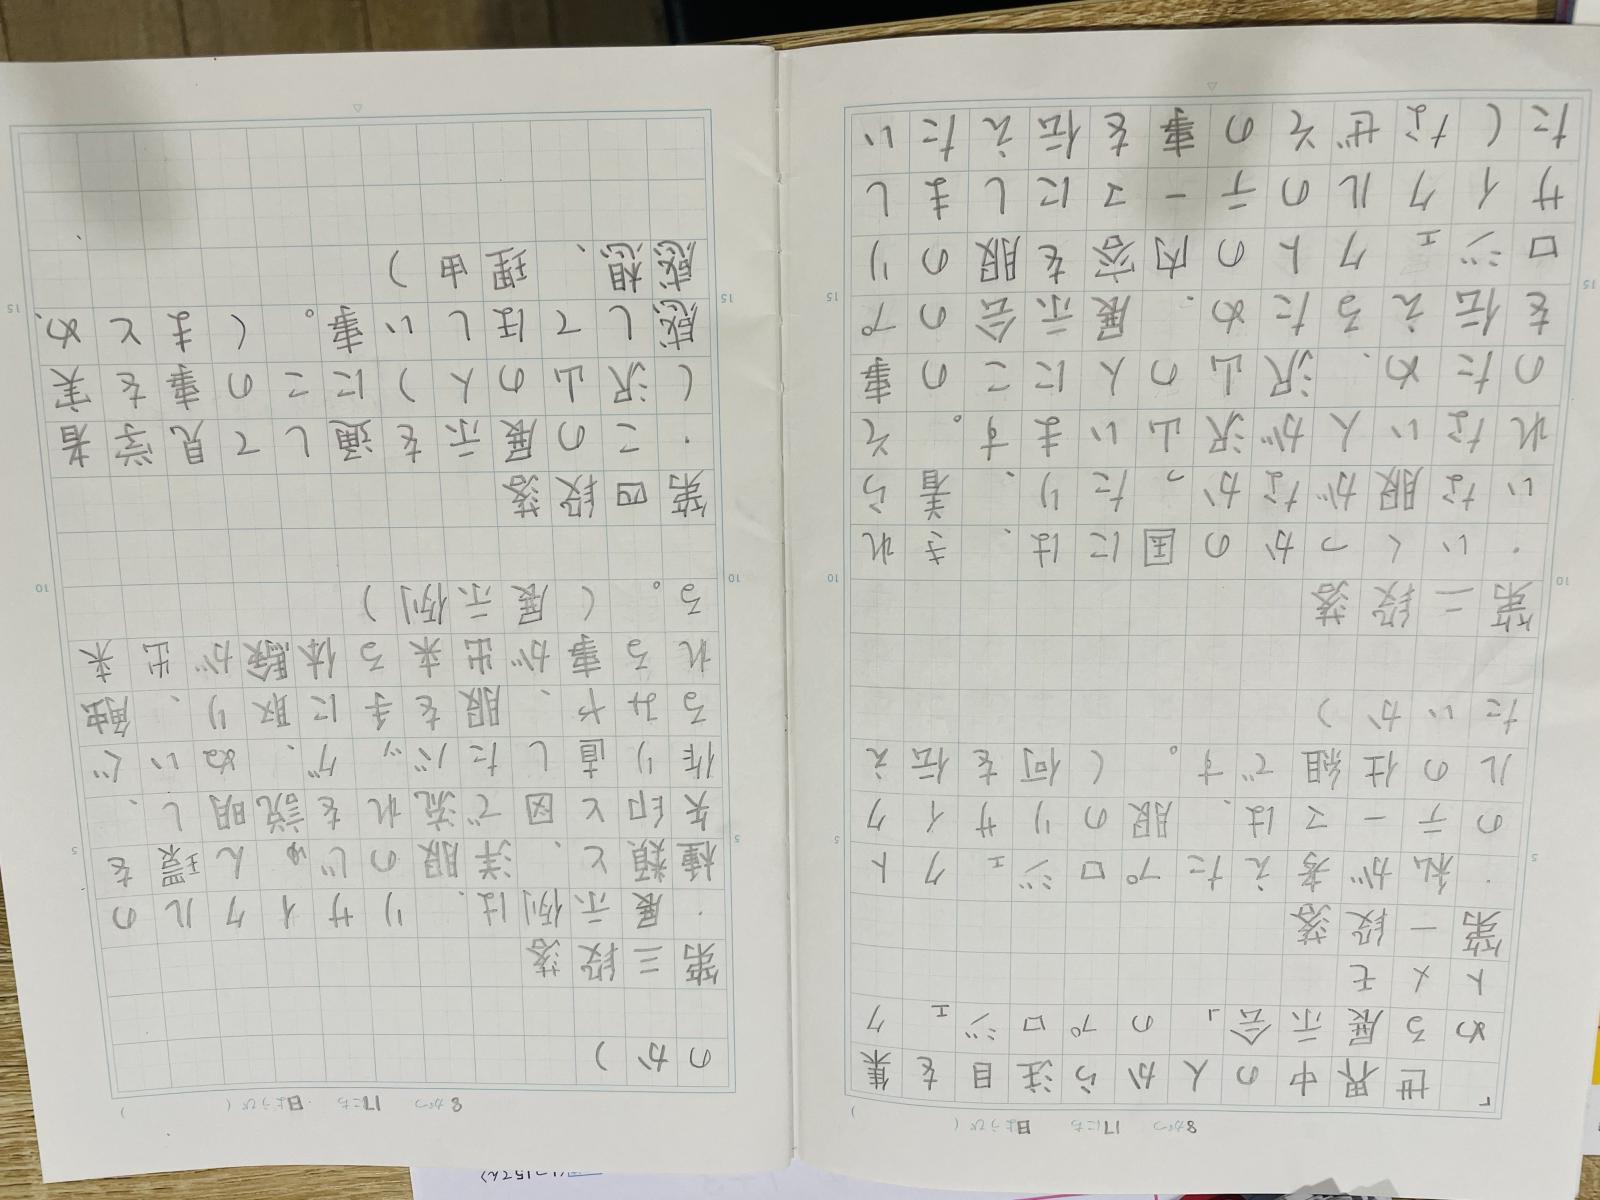 8がつ 17にち 日ようび( )
「世界中の人から注目を集
める展示会」のプロジェク
トメモ
第一段落
・私が考えたプロジェクト
のテーマは、服のリサイク
ルの仕組です。(何を伝え
たいか)
第二段落
・いくつかの国には、きれ
いな服がなかったり、着ら
れない人が沢山います。そ
のため、沢山の人にこの事
を伝えるため、展示会のプ
ロジェクトの内容を服のリ
サイクルのテーマにしまし
た(なぜその事を伝えたい
5
10
15
8がつ 17にち 日ようび( )
のか)
第三段落
・展示例は、リサイクルの
種類と、洋服のじゅん環を
矢印と図で流れを説明し、
作り直したバッグ、ぬいぐ
るみや、服を手に取り、触
れる事が出来る体験が出来
る。(展示例)
第四段落
・この展示を通して見学者
(沢山の人)にこの事を実
感してほしい事。(まとめ、
感想、理由)
5
10
15